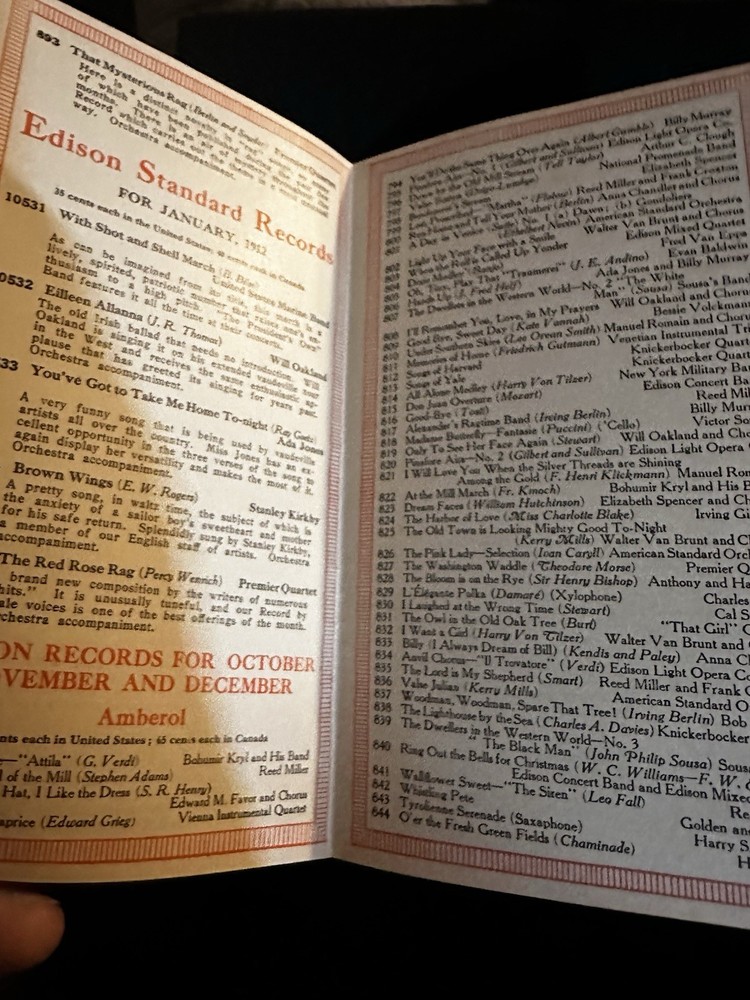 893 That Mysterious Rag (Berlin and Snyder) Premier Quartet
Here is a distinct novelty in "rag" songs, so many
of which have been published during the year
months. There is an air of
Record which carries out the theory throughout the
way. Orchestra accompaniment.
Edison Standard Records
FOR JANUARY, 1912
35 cents each in the United States; 40 cents each in Canada
10531 With Shot and Shell March (B. Bilse)
United States Marine Band
As can be imagined from its title, this march is a
lively, spirited, patriotic number that raises one's en-
thusiasm to a high pitch. "The President's Own"
Band features it all the time at their concerts.
0532 Eileen Allanna (J. R. Thomas) Will Oakland
The old Irish ballad that needs no introduction. Will
Oakland is singing it on his extended vaudeville tour
in the West and receives the same enthusiastic ap-
plause that has greeted his singing for years past.
Orchestra accompaniment.
33 You've Got to Take Me Home To-night (Ray Goetz)
Ada Jones
A very funny song that is being used by vaudeville
artists all over the country. Miss Jones has an ex-
cellent opportunity in the three verses of the song to
again display her versatility and makes the most of it.
Orchestra accompaniment.
Brown Wings (E. W. Rogers) Stanley Kirkby
A pretty song, in waltz time, the subject of which is
the anxiety of a sailor boy's sweetheart and mother
for his safe return. Splendidly sung by Stanley Kirkby,
a member of our English staff of artists. Orchestra
accompaniment.
The Red Rose Rag (Percy Wenrich) Premier Quartet
brand new composition by the writers of numerous
hits." It is unusually tuneful, and our Record by
ale voices is one of the best offerings of the month.
chestra accompaniment.
ON RECORDS FOR OCTOBER
VEMBER AND DECEMBER
Amberol
nts each in United States; 65 cents each in Canada
—"Attila" (G. Verdi) Bohumir Kryl and His Band
l of the Mill (Stephen Adams) Reed Miller
Hat, I Like the Dress (S. R. Henry)
Edward M. Favor and Chorus
aprice (Edward Grieg) Vienna Instrumental Quartet
794 You'll Do the Same Thing Over Again (Albert Gumble) Billy Murray
Pinafore Airs—No. 1 (Gilbert and Sullivan) Edison Light Opera Co.
Down by the Old Mill Stream (Tell Taylor) Arthur C. Clough
National Promenade Band
Elizabeth Spencer
"Martha" (Flotow) Reed Miller and Frank Croxton
and Tell Your Mother (Berlin) Anna Chandler and Chorus
A Day in Venice (Ethelbert Nevin) (a) Dawn; (b) Gondoliers
American Standard Orchestra
802 Light Up Your Face with a Smile Walter Van Brunt and Chorus
803 When the Roll is Called Up Yonder Edison Mixed Quartet
Medley (Banjo) Fred Van Epps
805 Oh, Tiny, Play That "Traumerei" (J. E. Andino) Evan Baldwin
806 Hands Up (J. Fred Helf) Ada Jones and Billy Murray
807 The Dwellers in the Western World—No. 2 "The White
Man" (Sousa) Sousa's Band
808 I'll Remember You, Love, in My Prayers Will Oakland and Chorus
809 Good Bye, Sweet Day (Kate Vannah) Bessie Volckmann
810 Under Southern Skies (Lee Orean Smith) Manuel Romain and Chorus
811 Memories of Home (Friedrich Gutmann) Venetian Instrumental Tr
812 Songs of Harvard Knickerbocker Quart
813 Songs of Yale Knickerbocker Quart
814 All Alone Medley (Harry Von Tilzer) New York Military Ban
815 Don Juan Overture (Mozart) Edison Concert Ba
816 Good-Bye (Tosti) Reed Mil
817 Alexander's Ragtime Band (Irving Berlin) Billy Mur
818 Madame Butterfly—Fantasie (Puccini) ('Cello) Victor So
819 Only To See Her Face Again (Stewart) Will Oakland and Cho
820 Pinafore Airs—No. 2 (Gilbert and Sullivan) Edison Light Opera
821 I Will Love You When the Silver Threads are Shining
Among the Gold (F. Henri Klickmann) Manuel Rom
822 At the Mill March (Fr. Kmoch) Bohumir Kryl and His B
823 Dream Faces (William Hutchinson) Elizabeth Spencer and Ch
824 The Harbor of Love (Miss Charlotte Blake) Irving Gi
825 The Old Town is Looking Mighty Good To-Night
(Kerry Mills) Walter Van Brunt and Ch
826 The Pink Lady—Selection (Ivan Caryll) American Standard Orch
827 The Washington Waddle (Theodore Morse) Premier Q
828 The Bloom is on the Rye (Sir Henry Bishop) Anthony and Ha
829 L'Élégante Polka (Damaré) (Xylophone) Charles
830 I Laughed at the Wrong Time (Stewart) Cal S
831 The Owl in the Old Oak Tree (Burt) "That Girl" Q
832 I Want a Girl (Harry Von Tilzer) Walter Van Brunt and
833 Billy (I Always Dream of Bill) (Kendis and Paley) Anna C
834 Anvil Chorus—"Il Trovatore" (Verdi) Edison Light Opera Co
835 The Lord is My Shepherd (Smart) Reed Miller and Frank C
836 Valse Julian (Kerry Mills) American Standard O
837 Woodman, Woodman, Spare That Tree! (Irving Berlin) Bob
838 The Lighthouse by the Sea (Charles A. Davies) Knickerbocker
839 The Dwellers in the Western World—No. 3
"The Black Man" (John Philip Sousa) Sous
840 Ring Out the Bells for Christmas (W. C. Williams—F. W.
Edison Concert Band and Edison Mixe
841 Wallflower Sweet—"The Siren" (Leo Fall) Re
842 Whistling Pete Golden an
843 Tyrolienne Serenade (Saxophone) Harry S
844 O'er the Fresh Green Fields (Chaminade) H